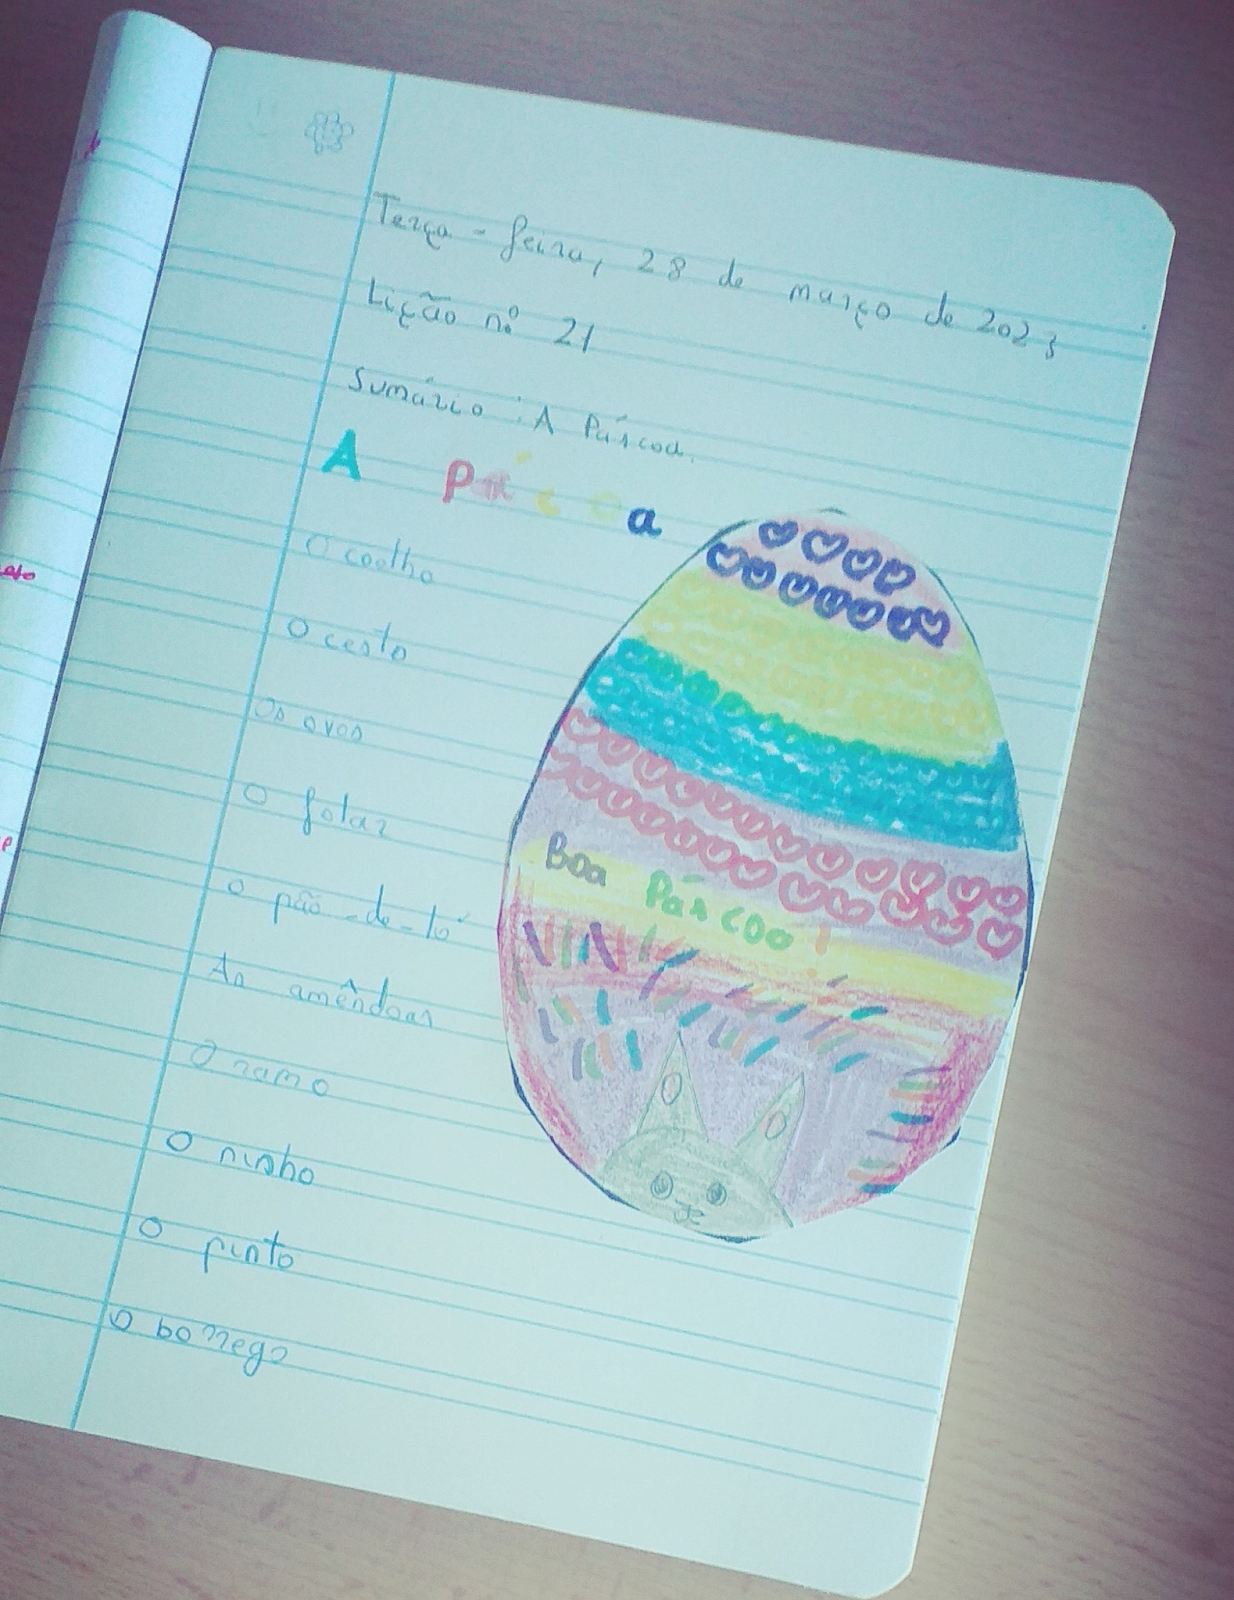 Terça-feira, 28 de março de 2023
Lição nº 21
Sumário: A Páscoa.
A Páscoa
O coelho
O cesto
Os ovos
O folar
O pão-de-ló
As amêndoas
O ramo
O ninho
O pinto
O borrego
Boa Páscoa!